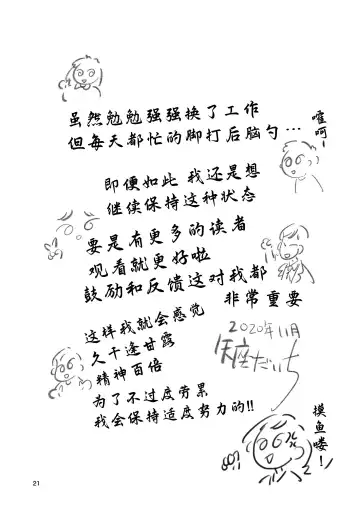 虽然勉勉强强换了工作
但每天都忙的脚打后脑勺…
嚯呵!
即便如此 我还是想
继续保持这种状态
要是有更多的读者
观看就更好啦
鼓励和反馈这对我都
非常重要
这样我就会感觉
久干逢甘露
精神百倍
为了不过度劳累
我会保持适度努力的!!
2020年11月
摸鱼喽!
21